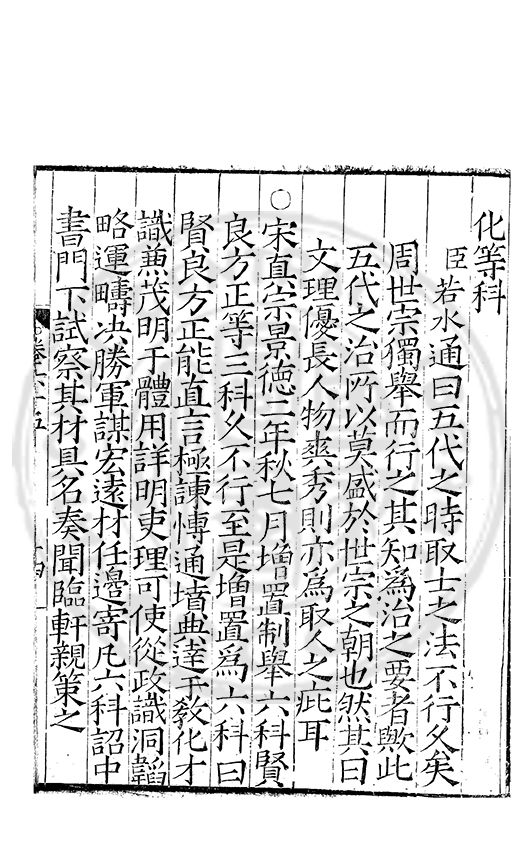 化等科
臣若水通曰五代之時取士之法不行久矣
周世宗獨舉而行之其知為治之要者歟此
五代之治所以莫盛於世宗之朝也然其曰
文理優長人物爽秀則亦為取人之疵耳
○宋真宗景德二年秋七月增置制舉六科賢
良方正等三科久不行至是增置為六科曰
賢良方正能直言極諫愽通墳典達于教化才
識兼茂明于體用詳明吏理可使從政識洞韜
略運疇決勝軍謀宏遠材任邊寄凡六科詔中
書門下試察其材具名奏聞臨軒親策之